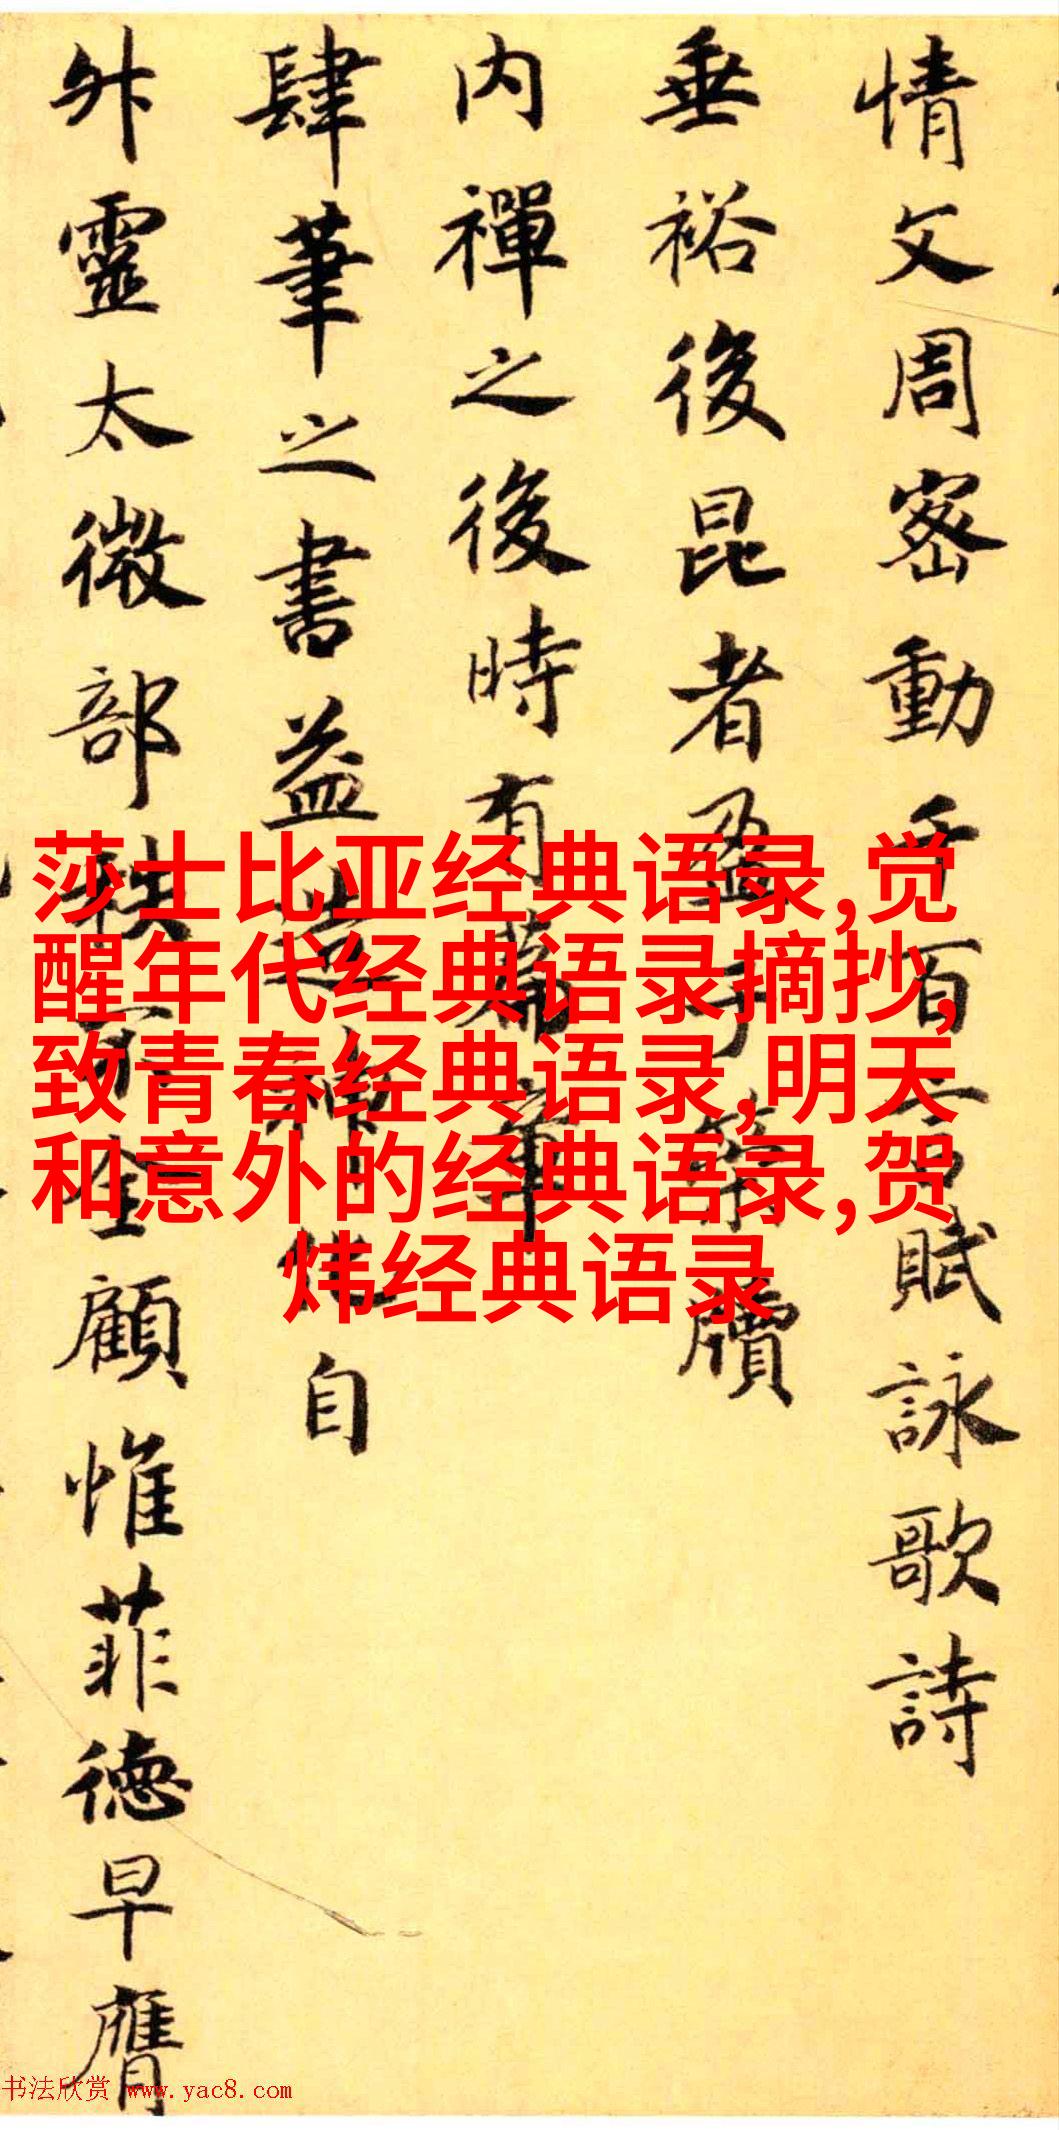 情文周密動千百言賦詠歌詩
垂裕後昆者盈牘
内禪之後時有章
肆筆之書益造神自
靈太微部顧惟菲德早膺
莎士比亚经典语录,觉
醒年代经典语录摘抄,
致青春经典语录,明天
和意外的经典语录,贺
炜经典语录
书法欣赏 www.yac8.com